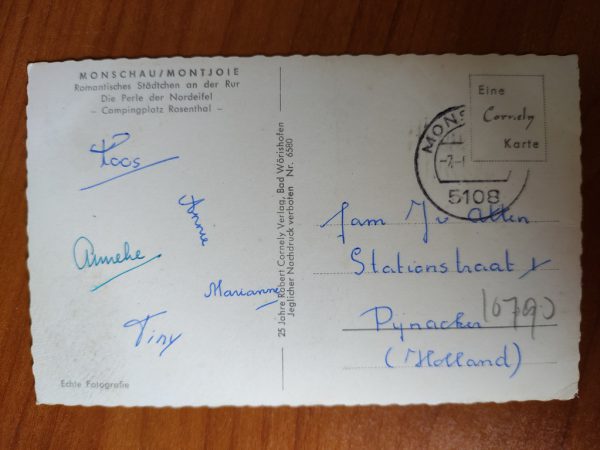 MONSCHAU/MONTJOIE
Romantisches Städtchen an der Rur
Die Perle der Nordeifel
– Campingplatz Rosenthal –
Roos
Annie
Anneke
Marianne
Tiny
Echte Fotografie
25 Jahre Robert Cornely Verlag, Bad Wörishofen
Jeglicher Nachdruck verboten Nr. 6580
Eine
Cornely
Karte
MONS
5108
fam J v Atten
Stationstraat
Pijnacker
(Holland)